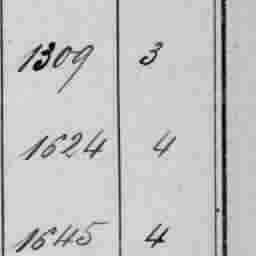 1309 3
1624 4
1645 4